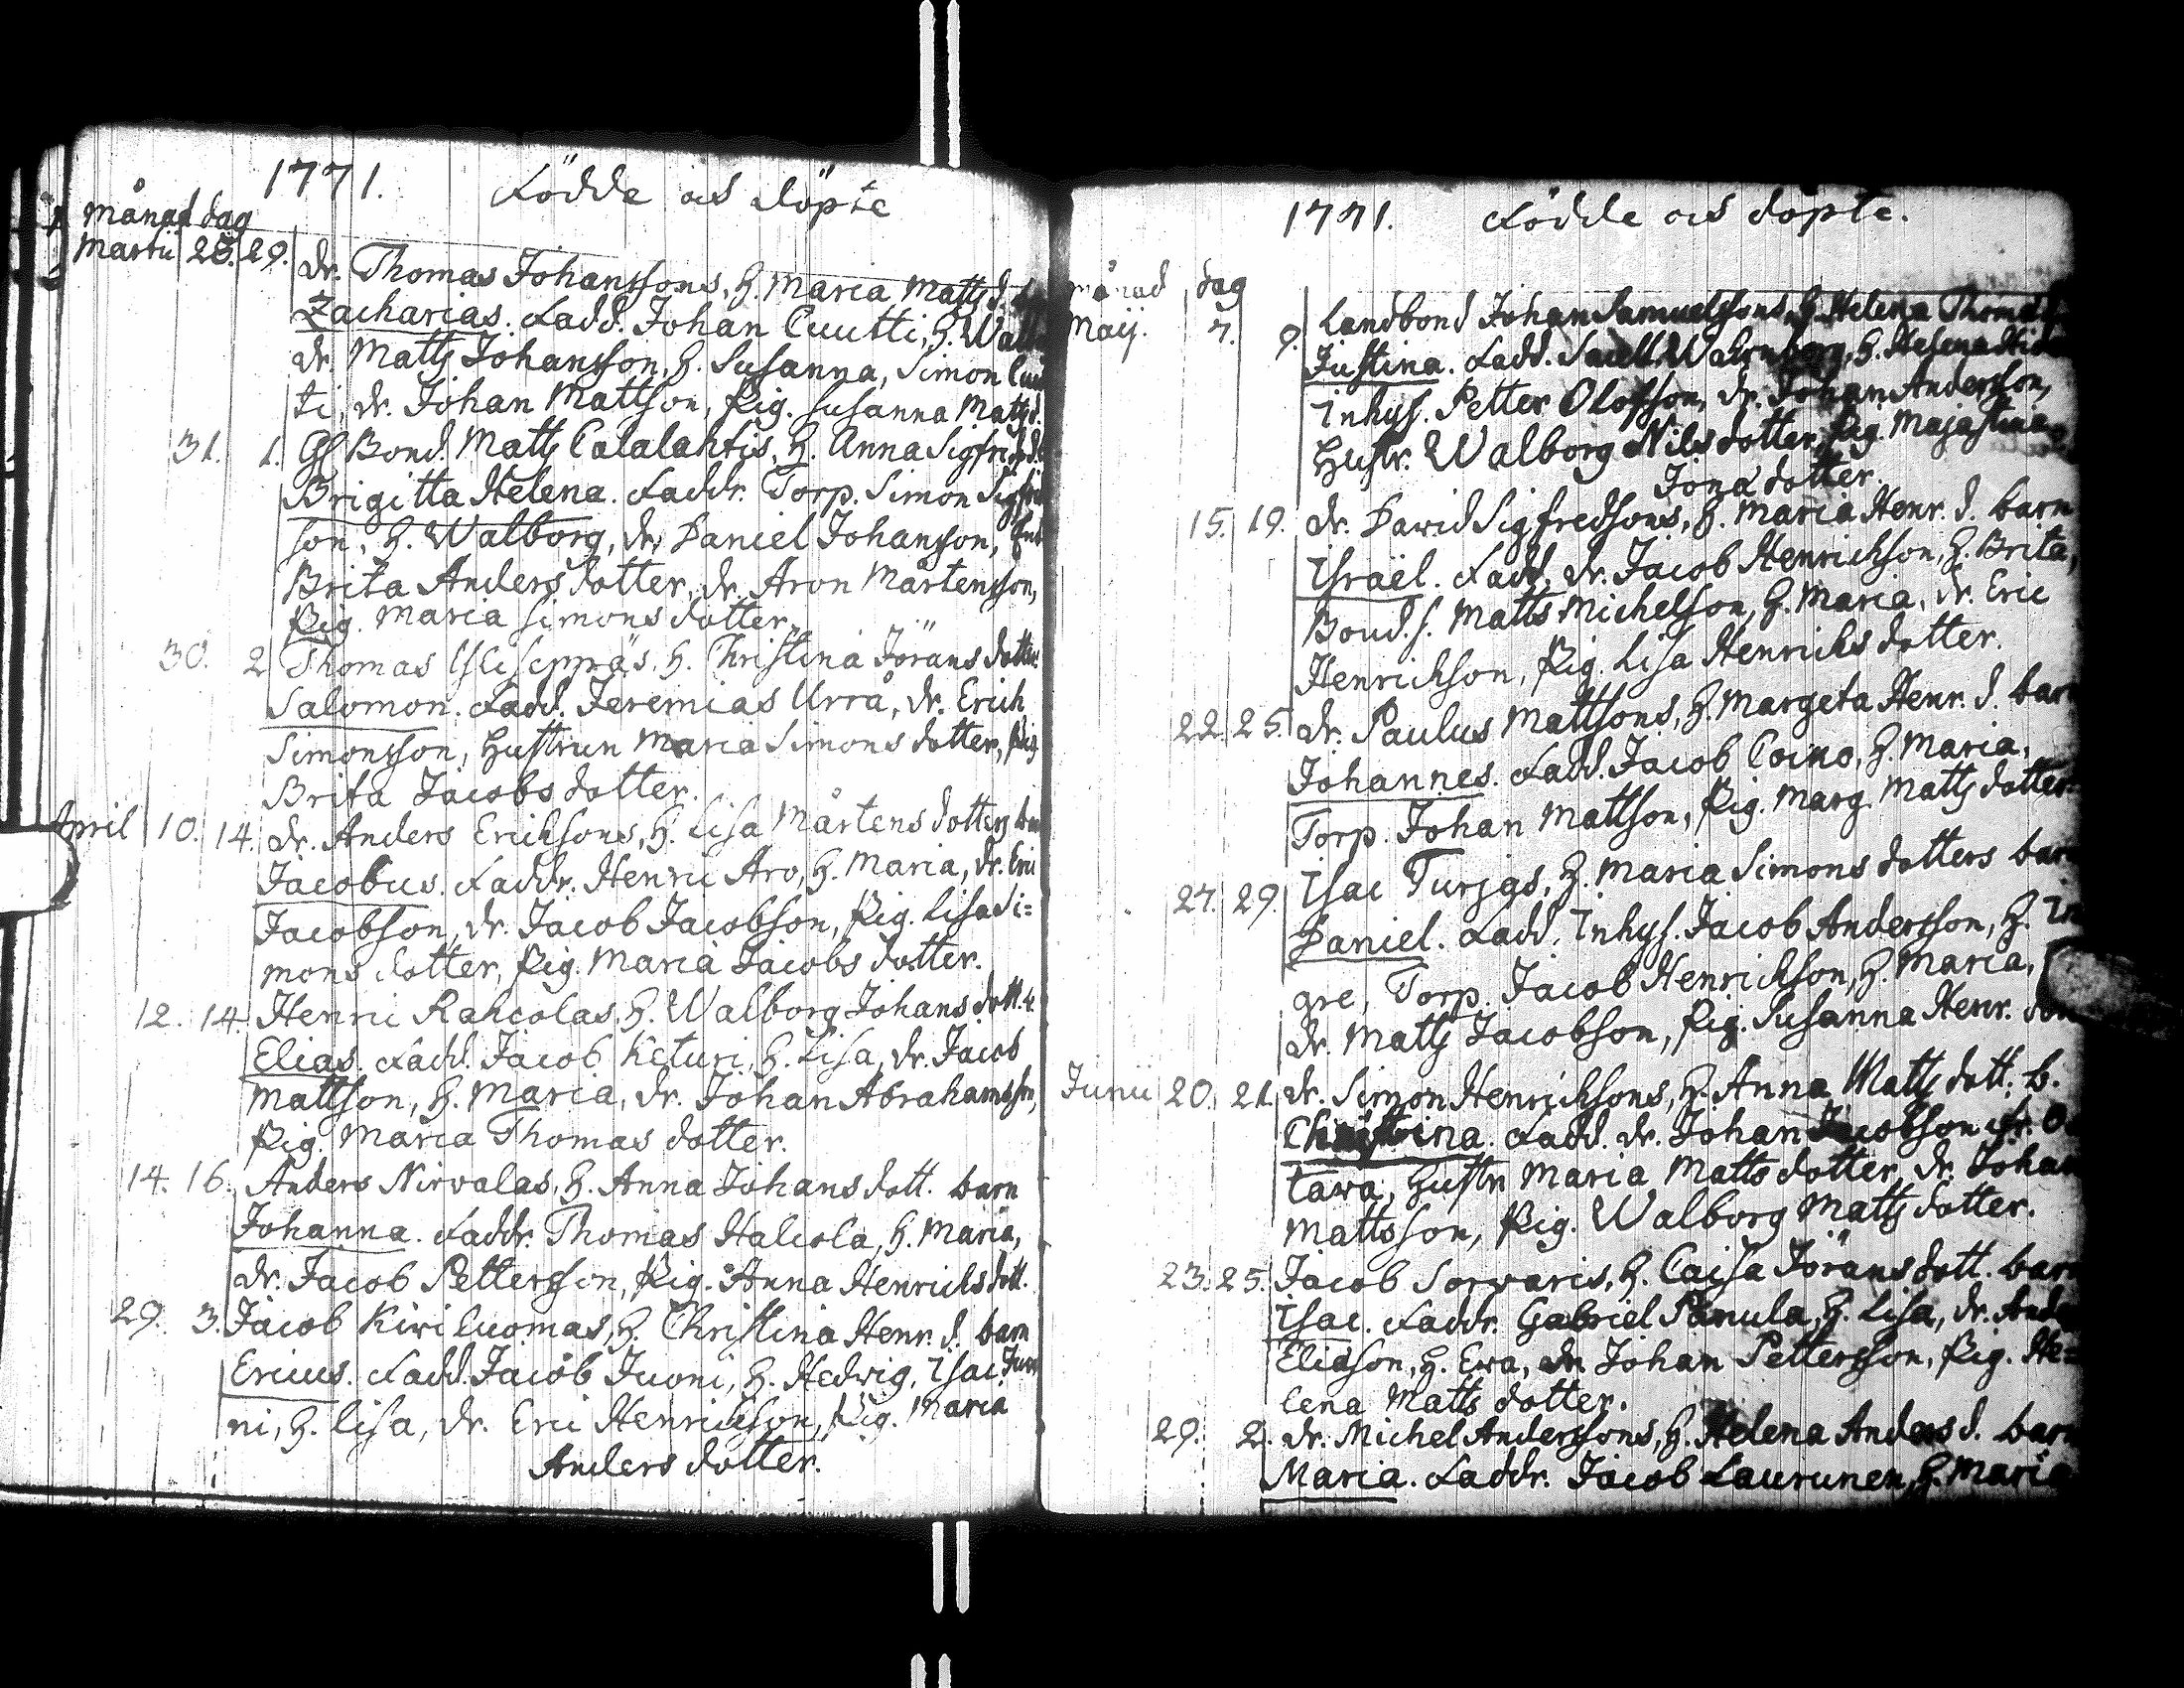 1771. Födde och döpte
månad dag
Martii 28. 29. dr. Thomas Johanssons, H. Maria Matts d.
Zacharias. Fadd. Johan Cuutti, H.
dr. Matts Johansson, H. Susanna, Simon Cuut
ti, dr. Johan Mattson, Pig. Susanna Matts d.
31. 1. Bond. Matts Calalahtis, H. Anna Sigfrids d.
Brigitta Helena. Faddr. Torp. Simon Sigfrid
son, H. Walborg, dr. Daniel Johansson,
Brita Anders dotter, dr. Aron Mårtensson,
Pig. Maria Simons dotter.
30. 2 Thomas H. Christina Jörans dotter
Salomon. Fadd. Jeremias Urra, dr. Erich
Simonsson, Hustrun Maria Simons dotter, Pig.
Brita Jacobs dotter.
April 10. 14. dr. Anders Ericksons, H. Lisa Mårtens dotters
Jacobus. Faddr. Henric Aro, H. Maria, dr. Eric
Jacobson, dr. Jacob Jacobson, Pig. Lisa Si=
mons dotter, Pig. Maria Jacobs dotter.
12. 14. Henric Rahcolas, H. Walborg Johans dott.
Elias. Fadd. Jacob Keturi, H. Lisa, dr. Jacob
Mattson, H. Maria, dr. Johan Abrahamson,
Pig. Maria Thomas dotter.
14. 16. Anders Nirvalas, H. Anna Johans dott. barn
Johanna. Faddr. Thomas Halcola, H. Maria,
dr. Jacob Pettersson, Pig. Anna Henrichs dott.
29. 3. Jacob Kiviluomas, H. Christina Henr. d. barn
Ericus. Fadd. Jacob Juoni, H. Hedwig, Isac Juo
ni, H. Lisa, dr. Eric Henrickson, Pig. Maria
Anders dotter.
1771. Födde och döpte.
månad dag
Maij. 7. 9. Landbond Johan Samuelssons, H. Helena Thomas
Justina. Fadd. H. Helena
Inhys. Petter Olofsson, dr. Johan Andersson,
Hustr. Walborg Nils dotter, Pig. Maja Stina
Jona dotter.
15. 19. dr. David Sigfredsons, H. Maria Henr. d. barn
Israël. Fadd. dr. Jacob Henrickson, H. Brita,
Bond. s. Matts Michelson, H. Maria, dr. Eric
Henrickson, Pig. Lisa Henrichs dotter.
22. 25. dr. Paulus Mattsons, H. Margeta Henr. d. barn
Johannes. Fadd. Jacob Coino, H. Maria,
Torp. Johan Mattson, Pig. Marg. Matts dotter
27. 29. Isac Turjas, H. Maria Simons dotters barn
Daniel. Fadd. Inhys. Jacob Andersson, H. In
gre, Torp. Jacob Henrickson, H. Maria,
dr. Matts Jacobson, Pig. Susanna Henr. dott
Junii 20. 21. dr. Simon Henricksons, H. Anna Matts dott. b.
Christina. Fadd. dr. Johan Jacobson fr. O
tawa, Hustr. Maria Matts dotter, dr. Johan
Mattsson, Pig. Walborg Matts dotter.
23. 25. Jacob Sorvaris, H. Caisa Jörans dott. barn
Isac. Faddr. Gabriel Panula, H. Lisa, dr. Anders
Eliason, H. Ewa, dr. Johan Pettersson, Pig. He=
lena Matts dotter.
29. 2. dr. Michel Anderssons, H. Helena Anders d. barn
Maria. Faddr. Jacob Laurunen, H. Maria